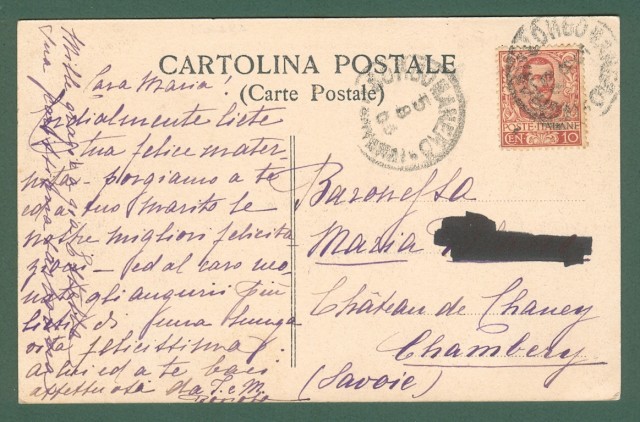 CARTOLINA POSTALE
(Carte Postale)
Cara Maria!
Cordialmente liete
tua felice mater-
nità - porgiamo a te
ed a tuo marito le
nostre migliori felicita
zioni - ed al caro neo-
nato gli auguri più
lieti di una lunga
vita felicissima!
a lui ed a te baci
affettuosi da
POSTE ITALIANE
CEN 10
5
8
Baronessa
Maria
Château de Chaney
Chambery
(Savoie)